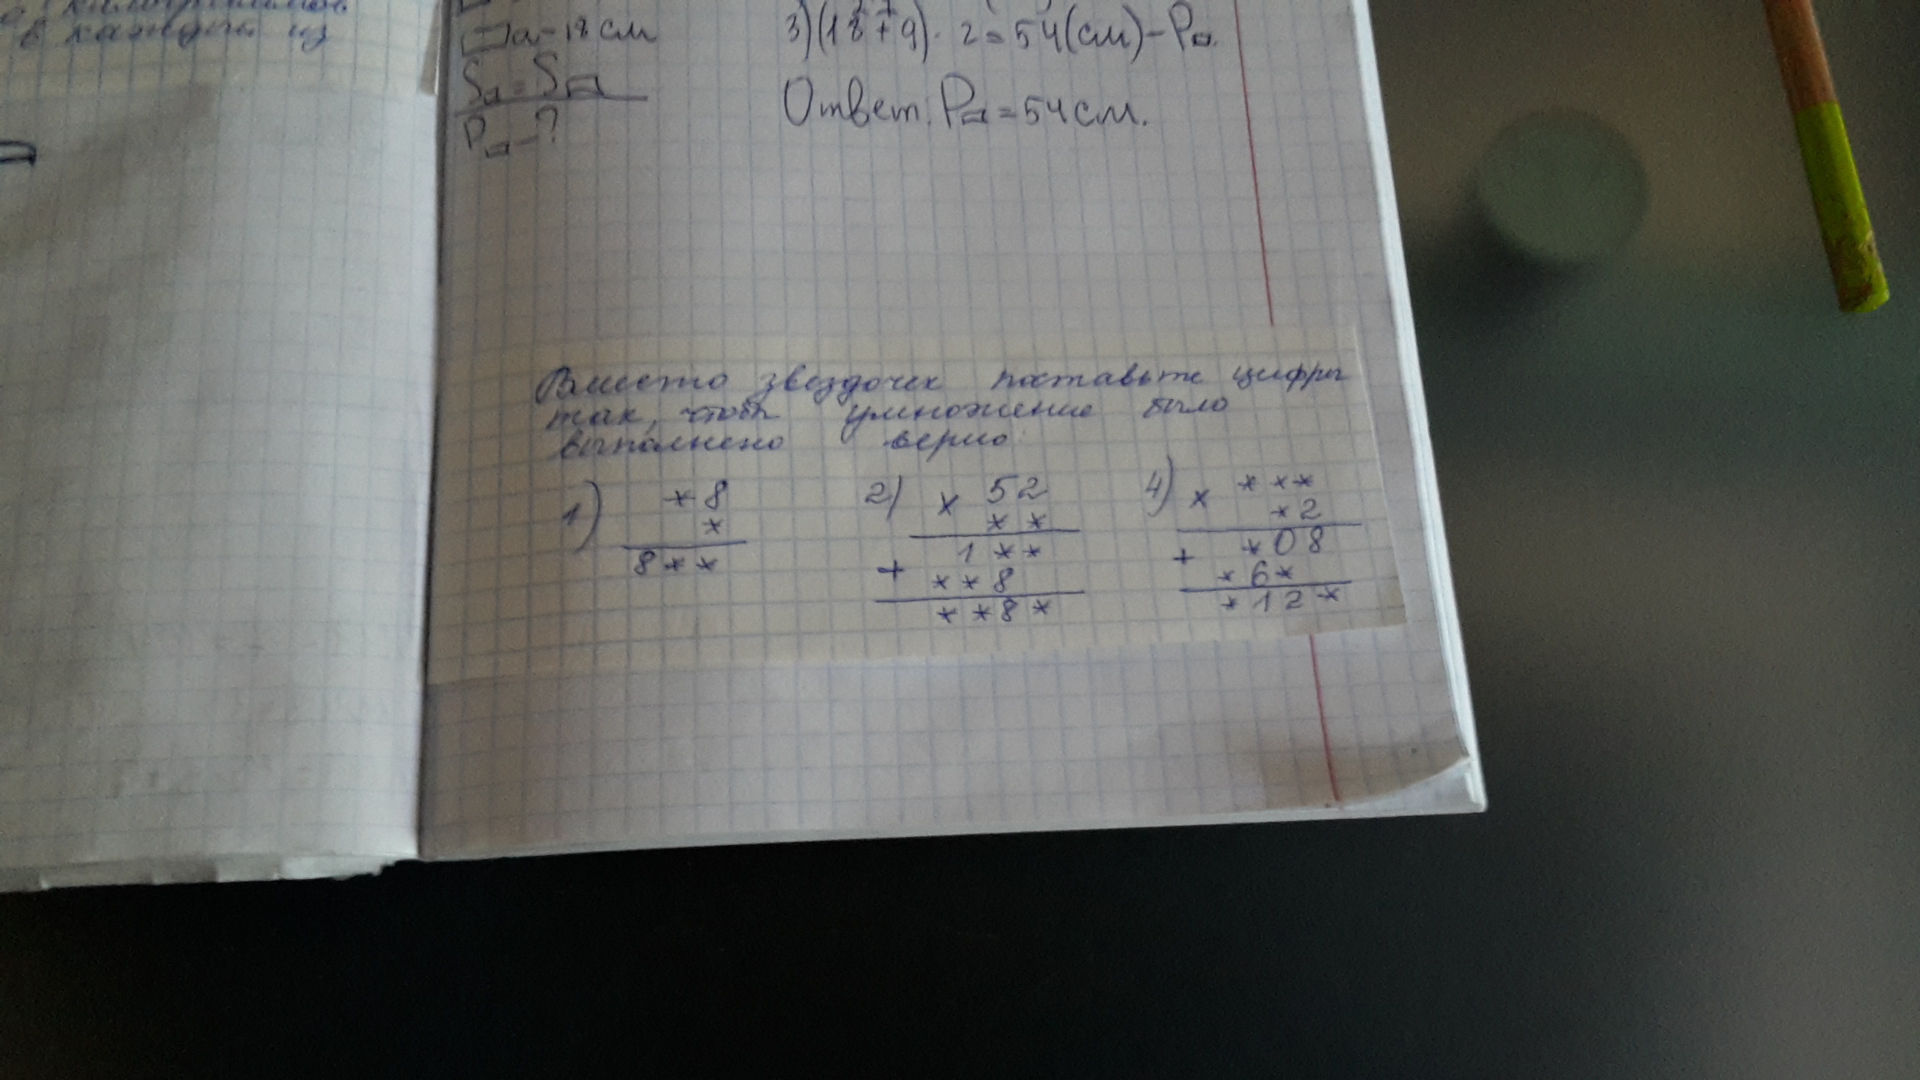 в каждый из
a - 18 см
S = S
P - ?
3) (18 + 9) · 2 = 54 (см) - P
Ответ: P = 54 см.
Вместо звездочек поставьте цифры
так, чтобы умножение было
выполнено верно.
1)
*8
*
8**
2)
× 52
**
1**
+
**8
**8*
4)
× ***
*2
*08
+
*6*
*12*